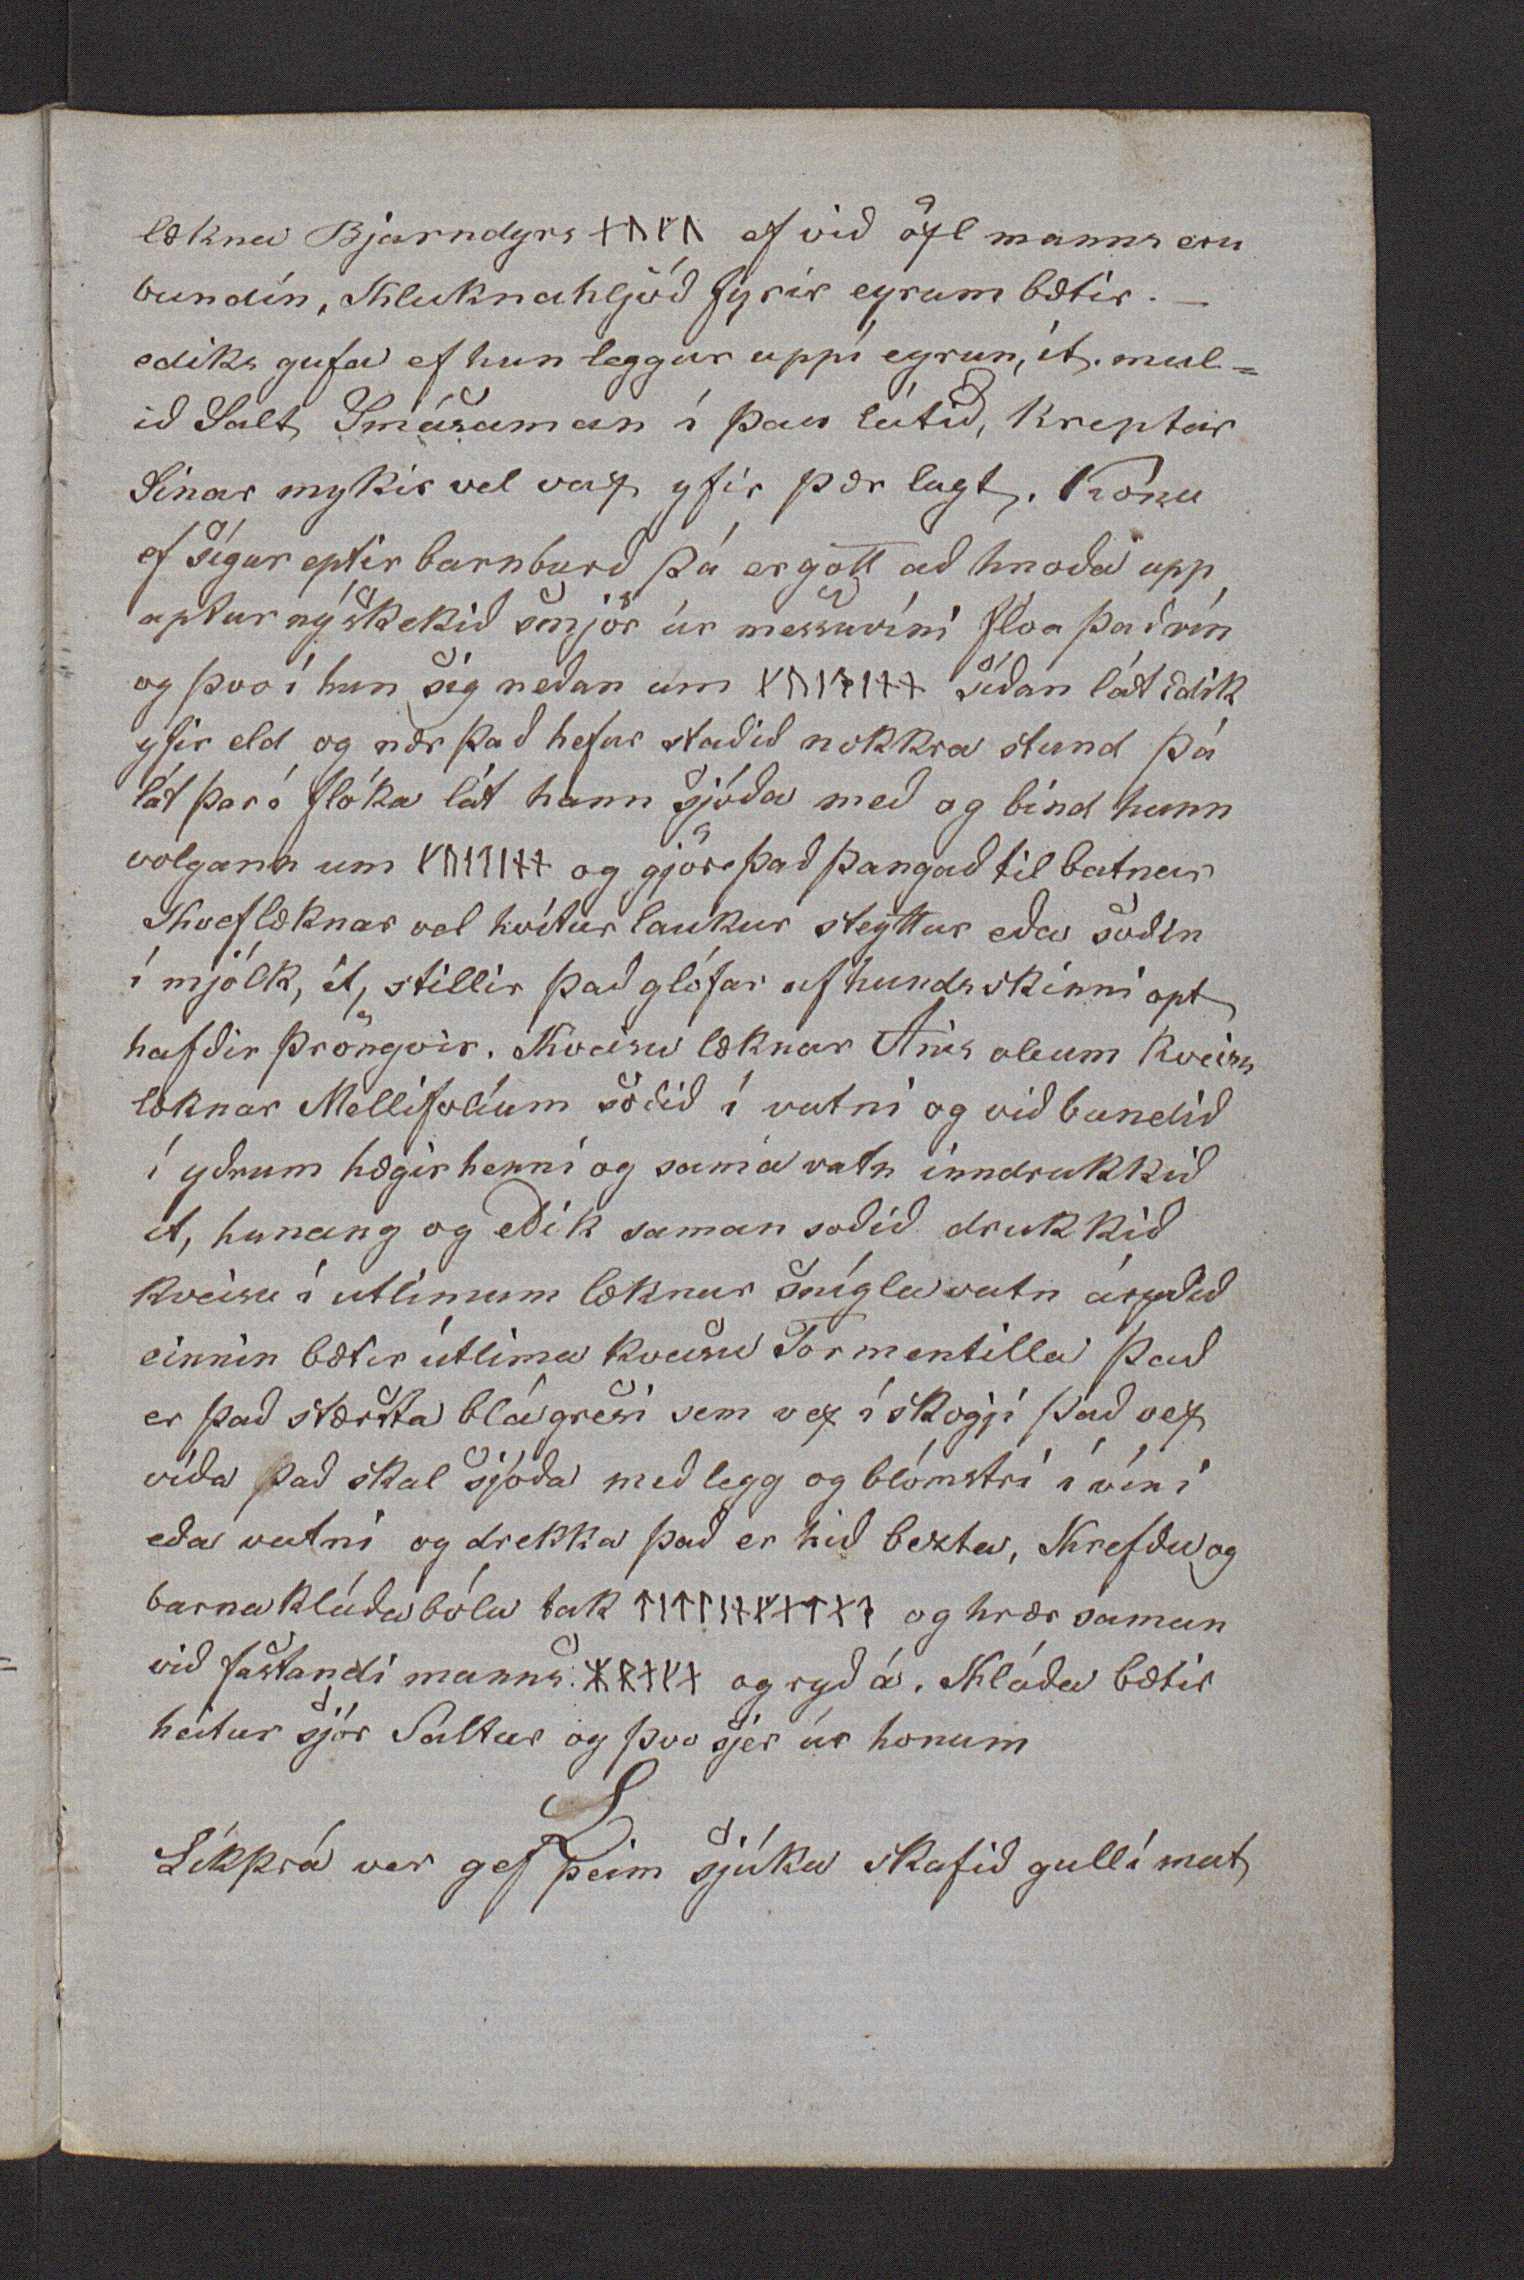 lækna Bjarndyrs ᚾᚢᚠᚢ ef við öxl manns eru
bundin, Kluknahljóð fyrir eyrum bætir. —
ediks gufa ef hun leggur uppí eyrun, it. mul=
ið Salt Smásaman í þau látið, kreptar
Sinar mykir vel vax yfir þær lagt. Konu
ef sígur eptir barnburð þá er gott að hnoða upp
aptur nýskekið smjör úr messuvíni flóa það vín
og þvoi hun sig neðan um ᚴᚢᛁᚦᛁᚾᚾ síðan lát edik
yfir eld og nær það hefur staðið nokkra stund þá
lát þar í flóka lát hann sjóða með og bind hann
volgann um ᚴᚢᛁᚦᛁᚾᚾ og gjöre það þangað til batnar
Kvef læknar vel hvítur laukur steyttur eða soðin
í mjólk, it, stillir það glófar af hundsskinni opt
hafðir þröngvir. Kveisu læknar Anis oleum Kveisu
læknar Mellifolium soðið í vatni og við bundið
í yðrum hægir henni og sama vatn inndrukkið
it, hunang og edik saman soðið drukkið
kveisu í utlimum læknar snígla vatn áryðið
einnin bætir útlima kveisu Tormentilla það
er það stærsta blágresi sem vex í skógji það vex
víða það skal sjóða með legg og blómstri í víni
eða vatni og drekka það er hið bezta, Krefðu og
barna kláða bólu tak ᛏᛁᛏᛚᛁᚾᚠᚾᛏᚾᚦ og hrær saman
við fastandi manns ᚼᚱᚾᚠᚾ og ryð á. Kláða bætir
heitur sjór Saltur og þvo sjer úr honum
L
Líkþrá ver gef þeim sjúka skafið gull í mat